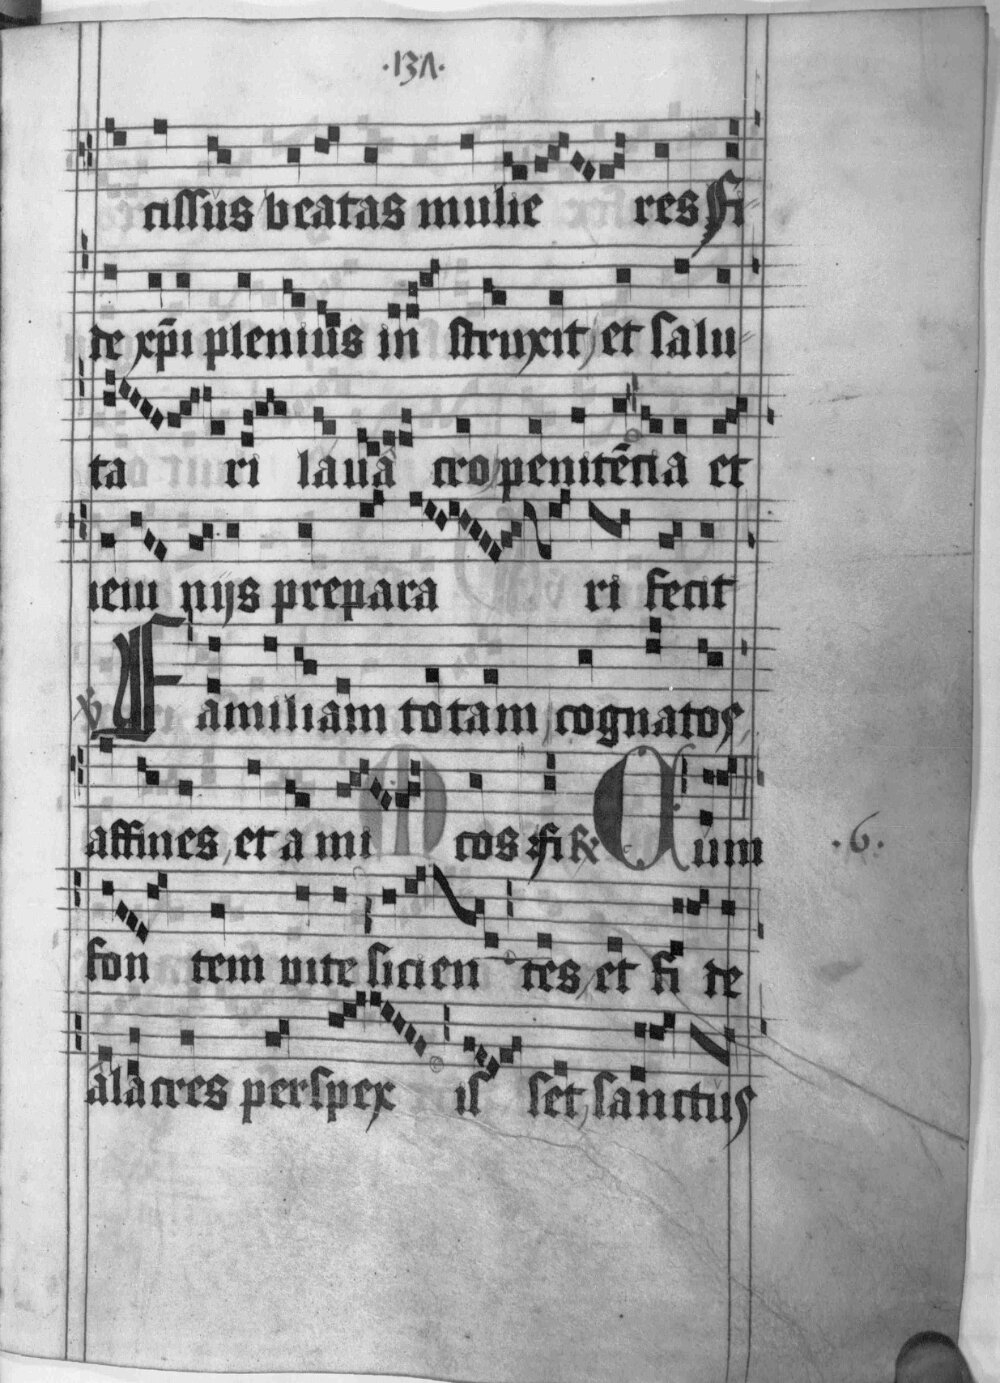 ·137·
cissus beatas mulie res Fi
de xp̄i plenius in struxit et salu
ta ri laua cro penitēcia et
ieiu nijs prepara ri fecit
V Familiam totam cognatos
affines, et a mi cos Fi Cum
·6·
fon tem vite sicien tes et fi de
alacres perspex is set sanctus